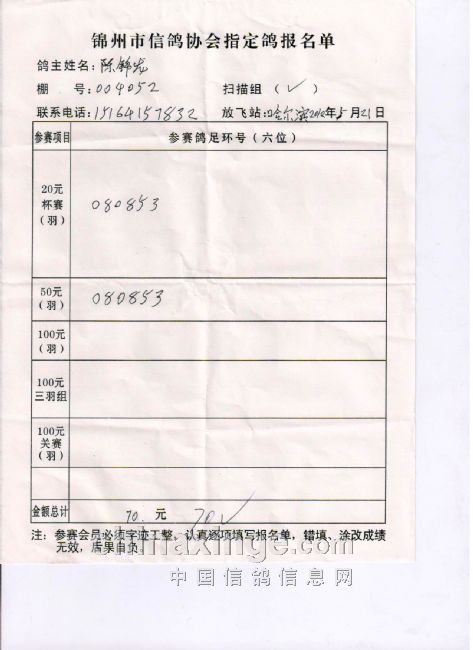 锦州市信鸽协会指定鸽报名单
鸽主姓名：陈锦龙
棚 号：004052 扫描组（✓）
联系电话：15164157832 放飞站：哈尔滨2010年5月21日
参赛项目 参赛鸽足环号（六位）
20元
杯赛
（羽）
080853
50元
（羽）
080853
100元
（羽）
100元
三羽组
100元
关赛
（羽）
金额总计 70. 元 70✓
注：参赛会员必须字迹工整。认真逐项填写报名单，错填、涂改成绩
无效，后果自负。
chinaxinge.com
中国信鸽信息网